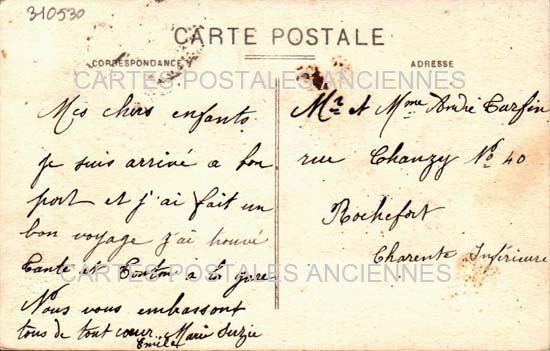 310530
CARTE POSTALE
CORRESPONDANCE
ADRESSE
CARTES POSTALES ANCIENNES
Mes chers enfants
Je suis arrivé a bon
port et j'ai fait un
bon voyage j'ai trouvé
Tante et Tonton a la gare
Nous vous embrassons
tous de tout cœur Marie Suzie
Emile
Mr et Mme André Tarfin
rue Chanzy No 40
Rochefort
Charente Inférieure
CARTES POSTALES ANCIENNES